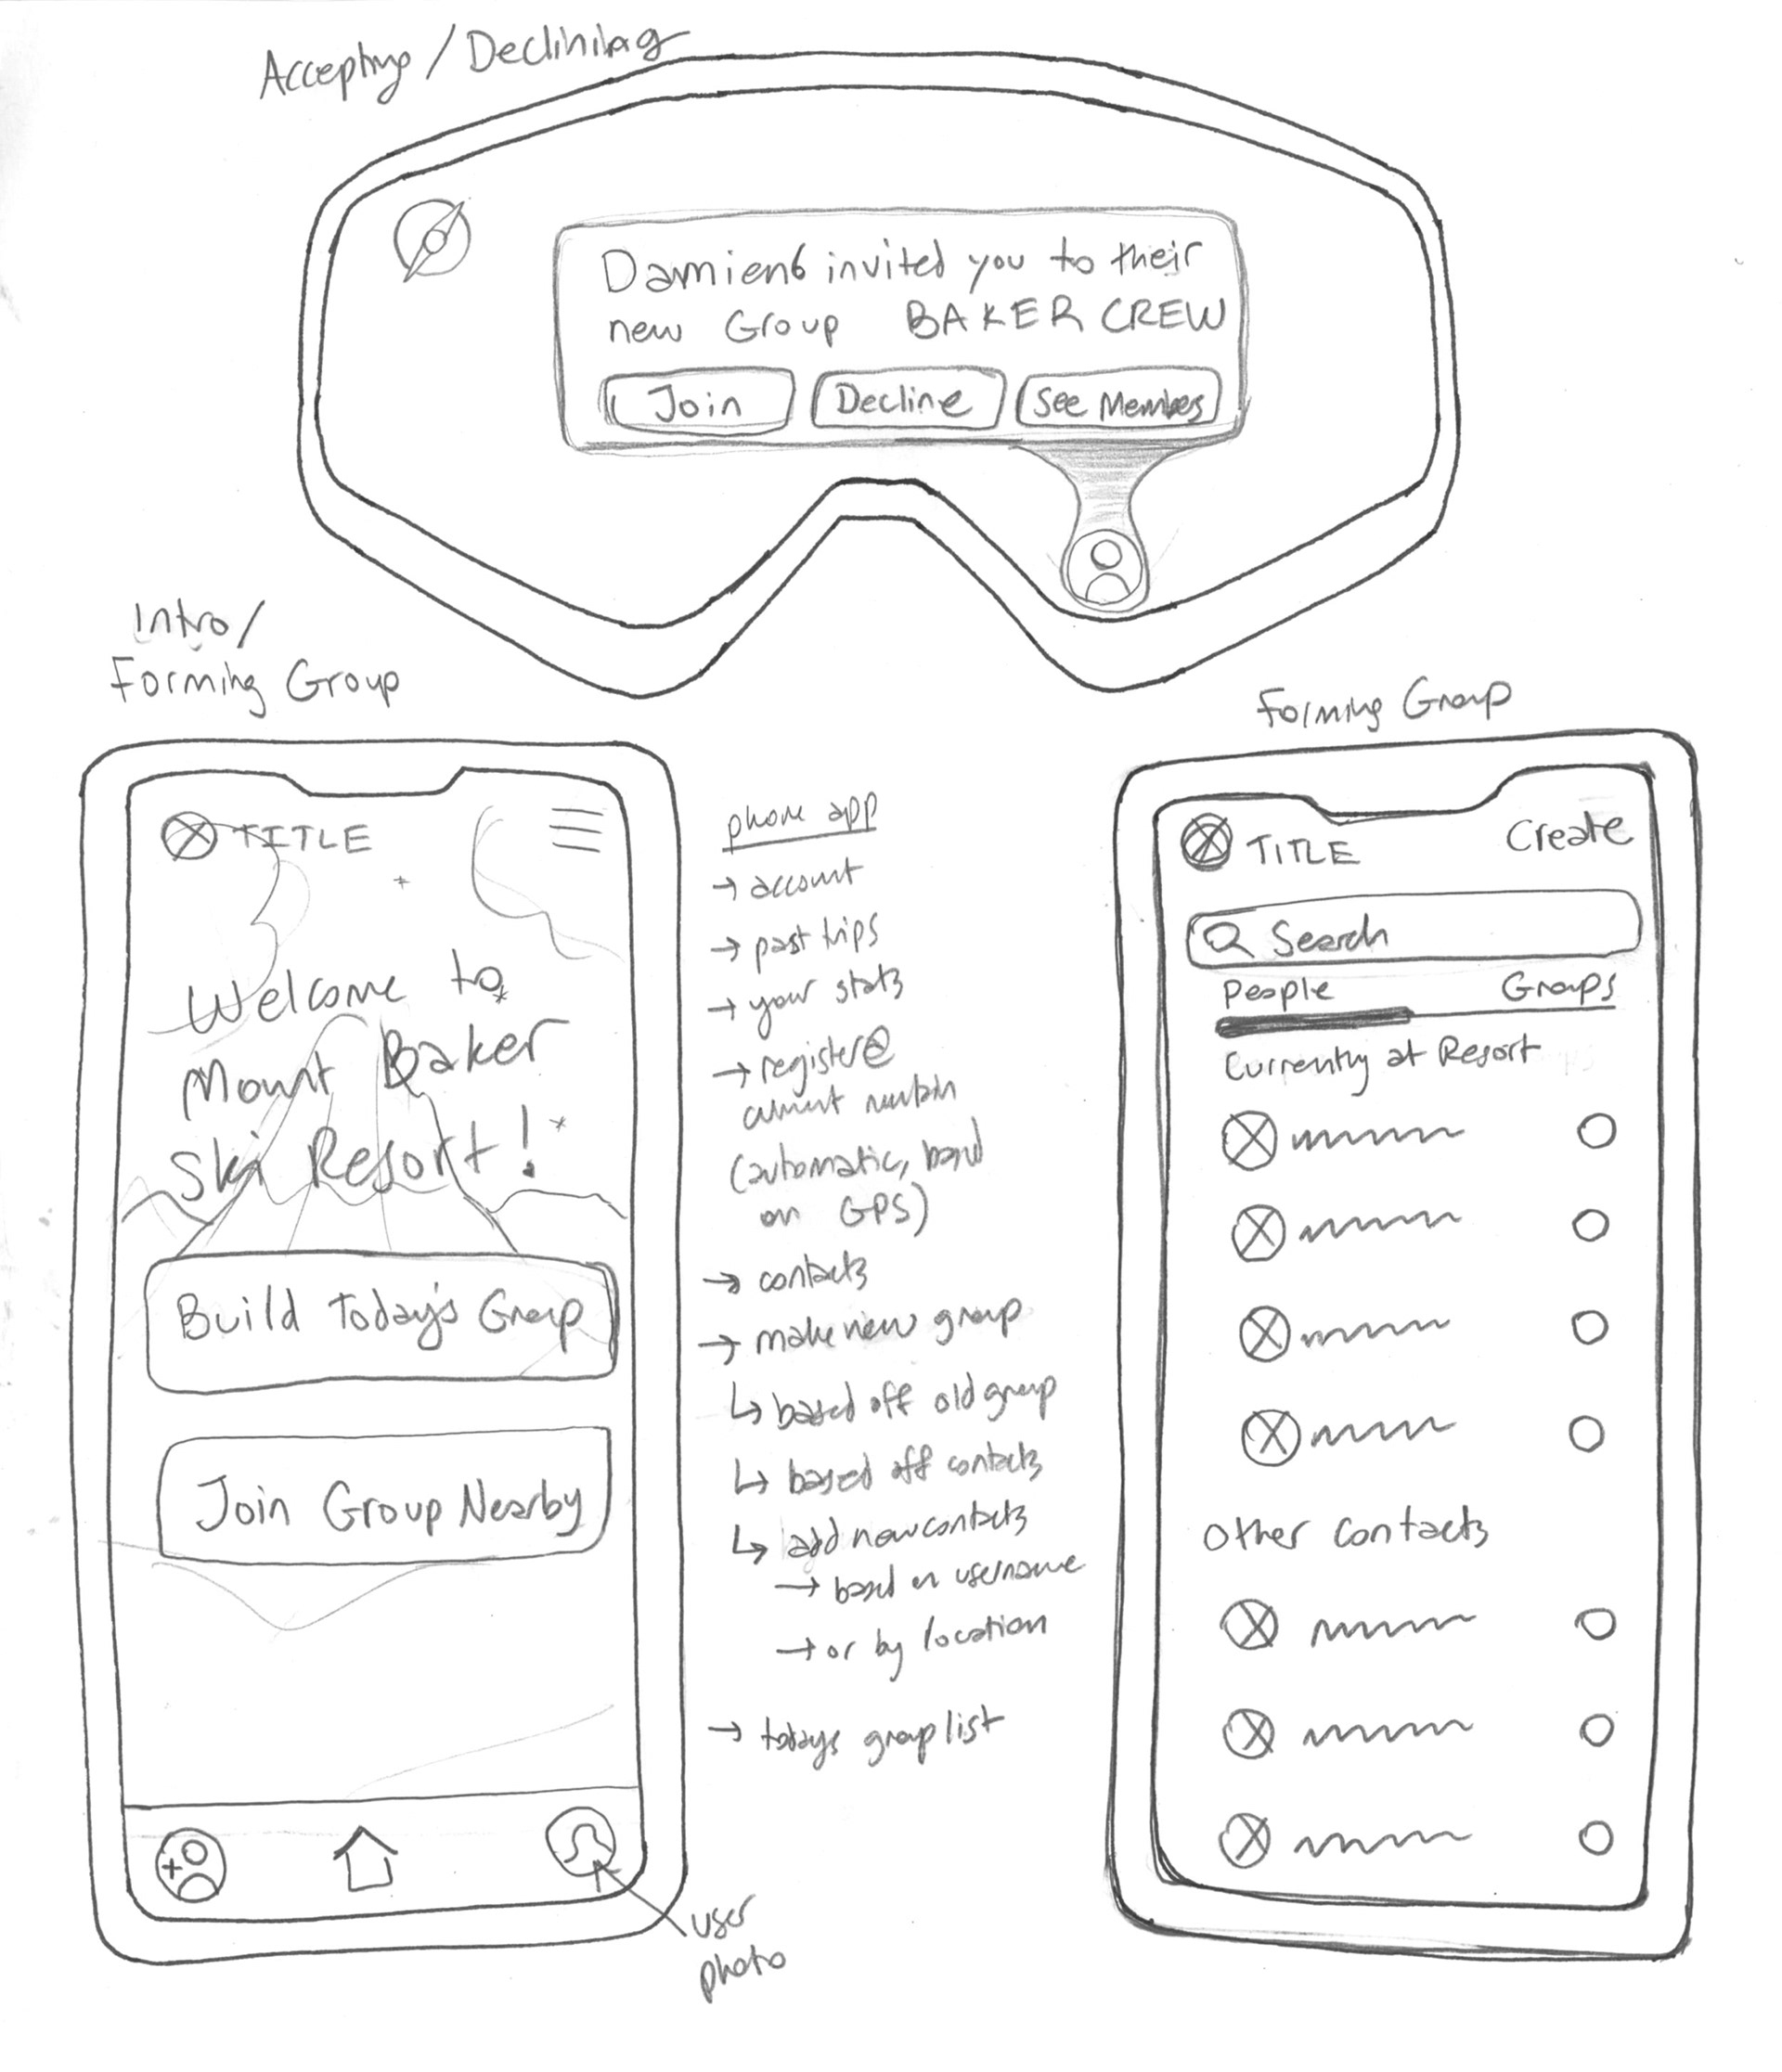 Accepting / Declining
Damien6 invited you to their
new Group BAKER CREW
Join
Decline
See Members
Intro/
Forming Group
TITLE
Welcome to
Mount Baker
Ski Resort!
Build Today's Group
Join Group Nearby
user
photo
phone app
→ account
→ past trips
→ your stats
→ register@
current
(automatic, based
on GPS)
→ contacts
→ make new group
↳ based off old group
↳ based off contacts
↳ add new contacts
→ based on username
→ or by location
→ todays group list
Forming Group
TITLE
Create
Search
People
Groups
Currently at Resort
Other Contacts